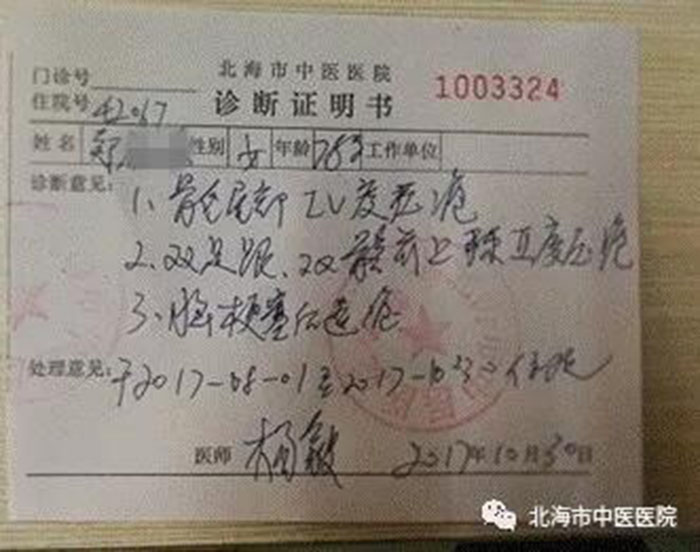 门诊号
北海市中医医院
1003324
住院号 42067
诊断证明书
姓名 郑 性别 女 年龄 78岁 工作单位
诊断意见:
1、骶尾部IV度压疮
2、双足跟、双髂前上棘 度压疮
3、脑梗塞后遗症
处理意见: 于2017-08-01至2017-10-30住院
医师 杨敏 2017年10月30日
北海市中医医院